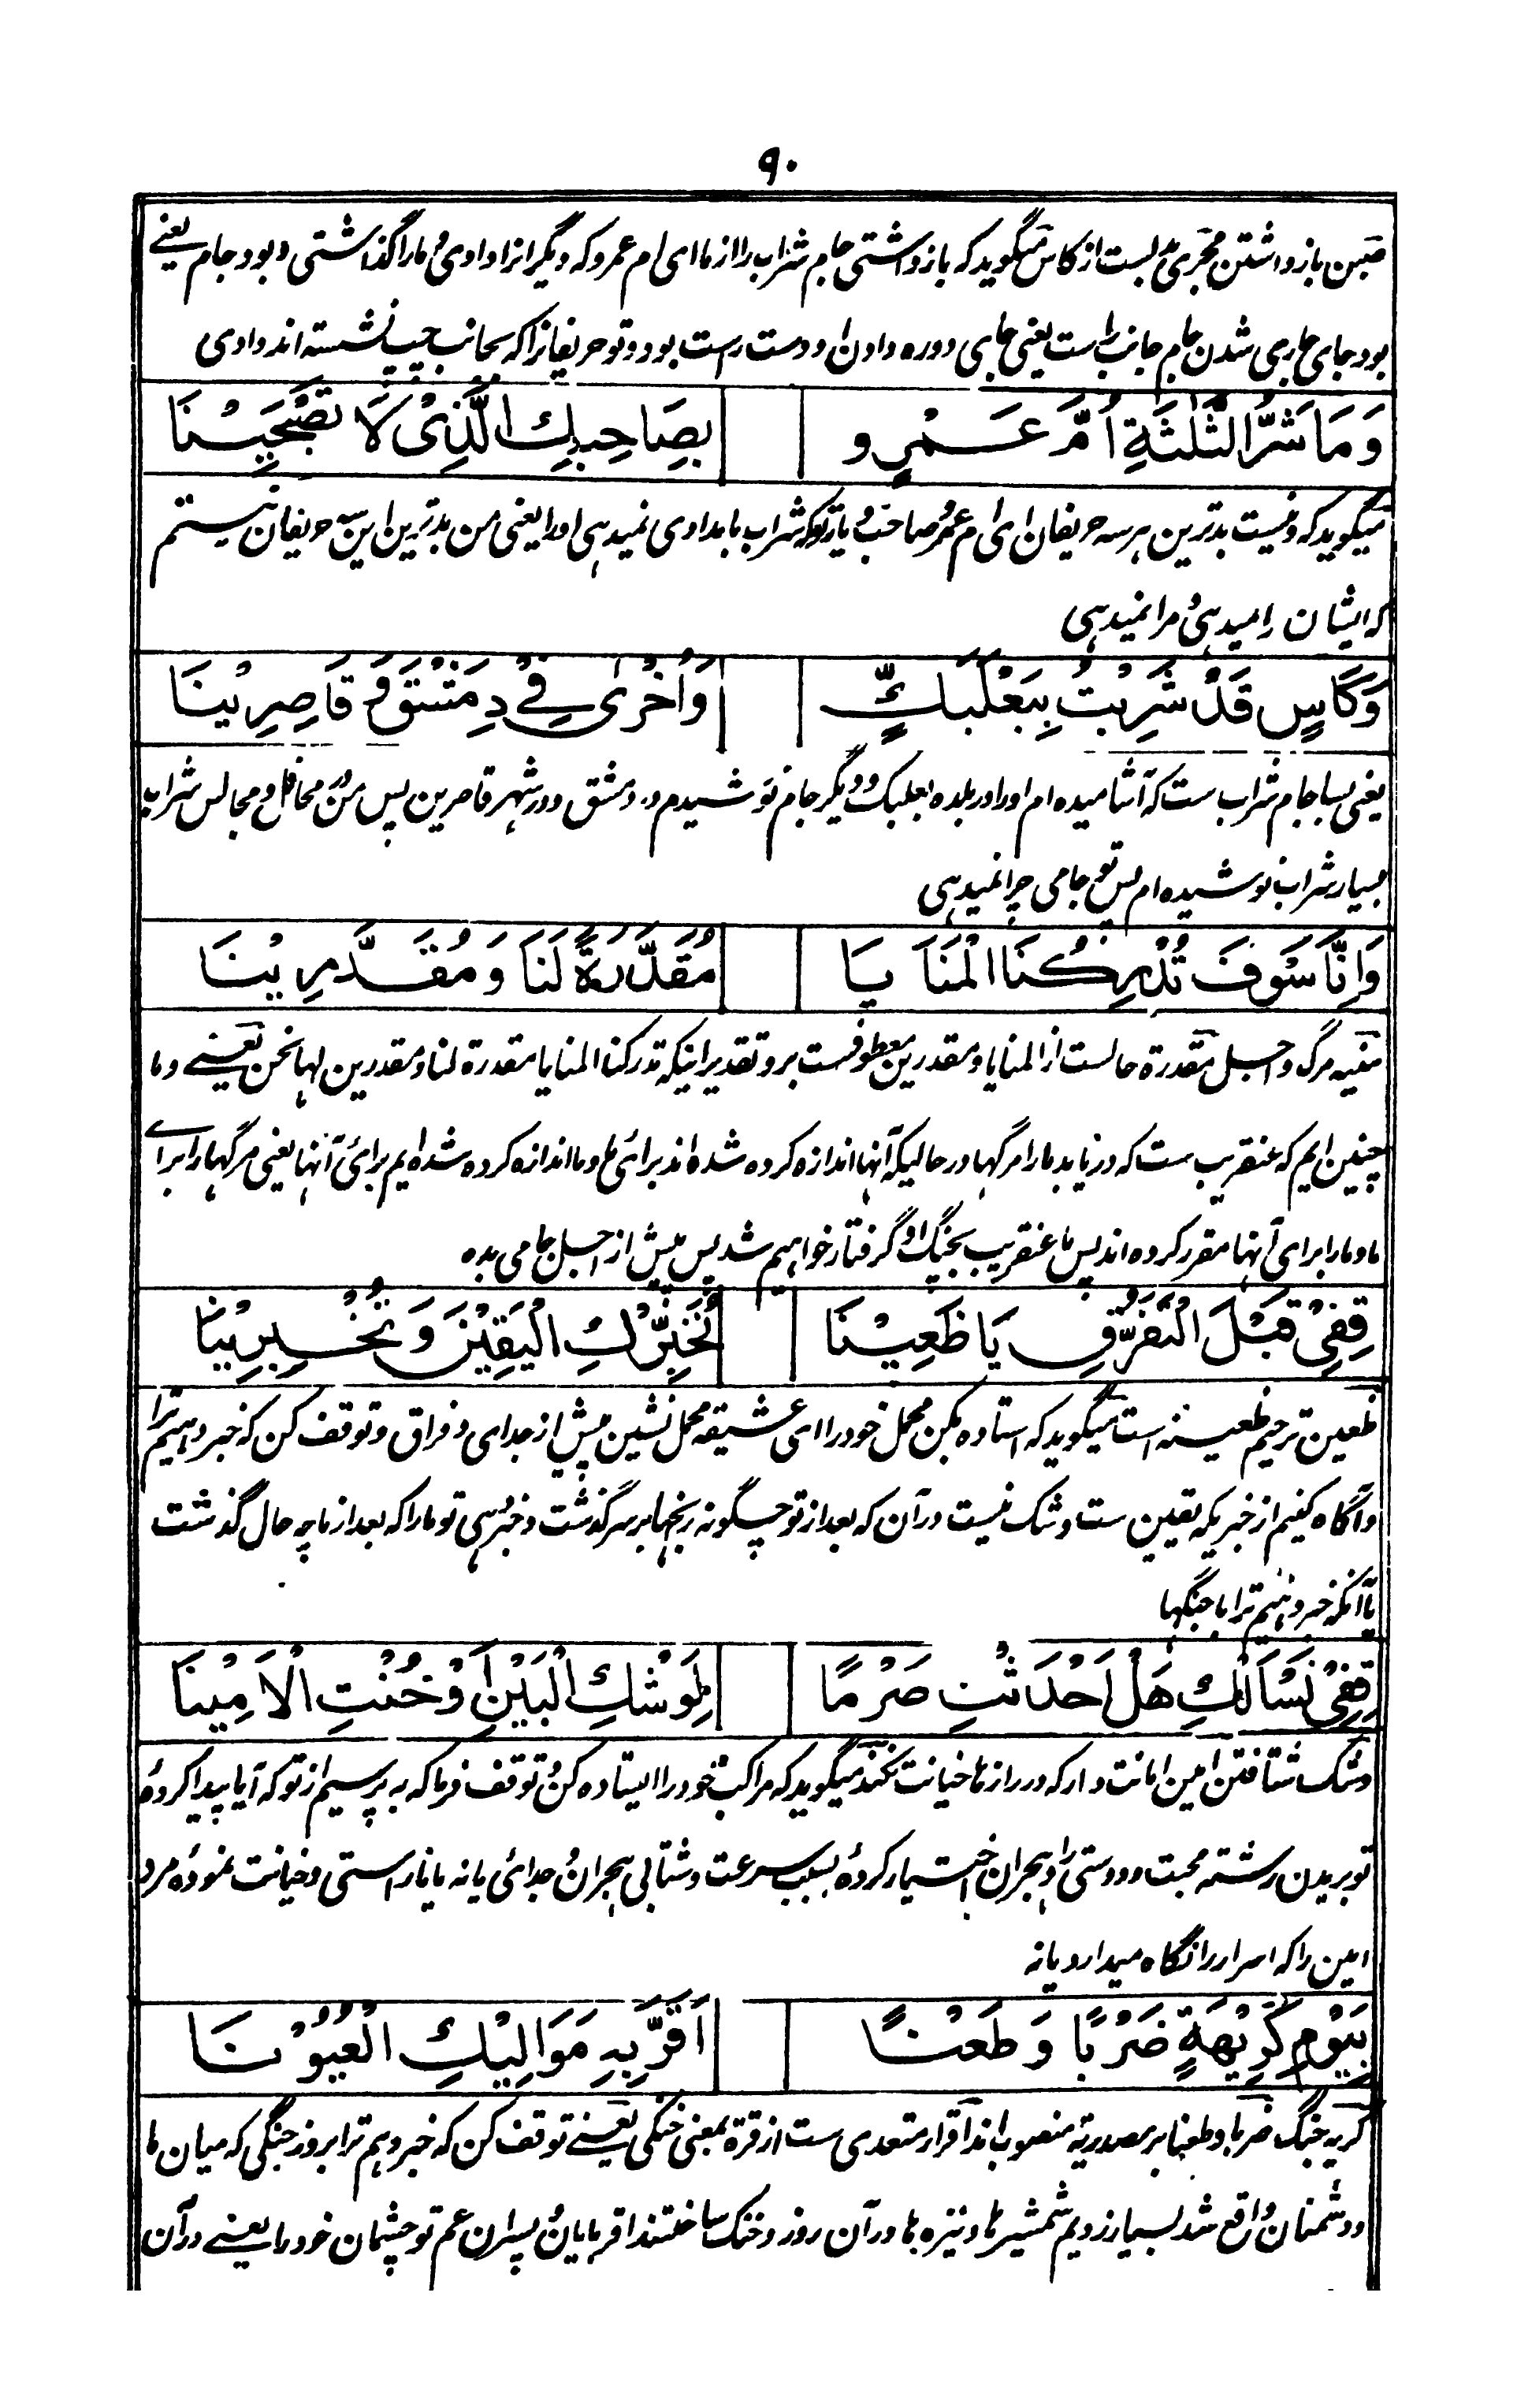 ۹۰
صبن بازداشتن مجری بدلست از کاس میگوید که بازداشتی جام شراب را از ما ای ام عمرو که دیگرانرا دادی و مارا گذاشتی و بود جام یعنے
بود جای جاری شدن جام جانب راست یعنی جای دوره دادن او دست راست بود و تو حریفانرا که بجانب چپ نشسته اند دادی
وَمَا شَرُّ الثَّلٰثَةِ اُمَّ عَمْرٍو بِصَاحِبِكِ الَّذِیْ لَا تَصْبَحِيْنَا
میگوید که و نیست بدترین هر سه حریفان ای ام عمرو صاحب و یار تو که شراب بامدادی نمیدهی اورا یعنی من بدترین این سه حریفان نیستم
که ایشان را میدهی و مرا نمیدهی
وَكَاسٍ قَدْ شَرِبْتُ بِبَعْلَبَكٍّ وَاُخْرٰى فِیْ دِمَشْقَ وَ قَاصِرِيْنَا
یعنی بسا جام شراب ست که آشامیده ام اورا در بلده بعلبک و دیگر جام نوشیدم در دمشق و در شهر قاصرین پس من در محافل و مجالس شراب
بسیار شراب نوشیده ام پس تو جامی چرا نمیدهی
وَاِنَّا سَوْفَ تُدْرِكُنَا الْمَنَايَا مُقَدَّرَةً لَنَا وَ مُقَدَّرِيْنَا
منیه مرگ و اجل مقدرة حالست از المنایا و مقدرین معطوفست بر و تقدیر اینکه تدرکنا المنایا مقدرة لنا و مقدرین لها نحن یعنے و ما
چنین ایم که عنقریب ست که دریابد مارا مرگها در حالیکه آنها اندازه کرده شده اند برای ما و ما اندازه کرده شده ایم برای آنها یعنی مرگها را براے
ما و مارا برای آنها مقرر کرده اند پس ما عنقریب بچنگ او گرفتار خواهیم شد پس پیش از اجل جامی بده
قِفِیْ قَبْلَ التَّفَرُّقِ يَا ظَعِيْنَا نُخَبِّرْكِ الْيَقِيْنَ وَ تُخْبِرِيْنَا
ظعین ترخیم ظعینه است میگوید که استاده بکن محمل خود را ای عشیقه محمل نشین پیش از جدای و فراق و توقف کن که خبر دهیم ترا
و آگاه کنیم از خبریکه یقین ست و شک نیست در آن که بعد از تو چگونه رنجها بر سر گذشت و خبر دهی تو مارا که بعد از ما چه حال گذشت
یا آنکه خبر دهیم ترا با جنگها
قِفِیْ نَسْاَلْكِ هَلْ اَحْدَثْتِ صَرْمًا لِوَشْكِ الْبَيْنِ اَوْ خُنْتِ الْاَمِيْنَا
وشک شتافتن امین امانت دار که در رازها خیانت نکند میگوید که مراکب خود را ایستاده کن و توقف فرما که به پرسیم از تو که آیا پیدا کردۀ
تو بریدن رشته محبت و دوستی را و هجران اختیار کردۀ بسبب سرعت و شتابی هجران و جدائی یا نه یا ناراستی و خیانت نمودۀ مرد
امین را که اسرار را نگاه میدارد یا نه
بِيَوْمِ كَرِيْهَةٍ ضَرْبًا وَ طَعْنًا اَقَرَّ بِهِ مَوَالِيْكِ الْعُيُوْنَا
کریه جنگ ضربا و طعنا بر مصدریة منصوب اند اقرار متعدی ست از قرة بمعنی خنکی یعنے توقف کن که خبر دهم ترا بروز جنگی که میان ما
و دشمنان واقع شد بسیار زدیم شمشیرها و نیزه ها در آن روز و خنک ساختند اقربایان و پسران عم تو چشمان خود را یعنے در آن